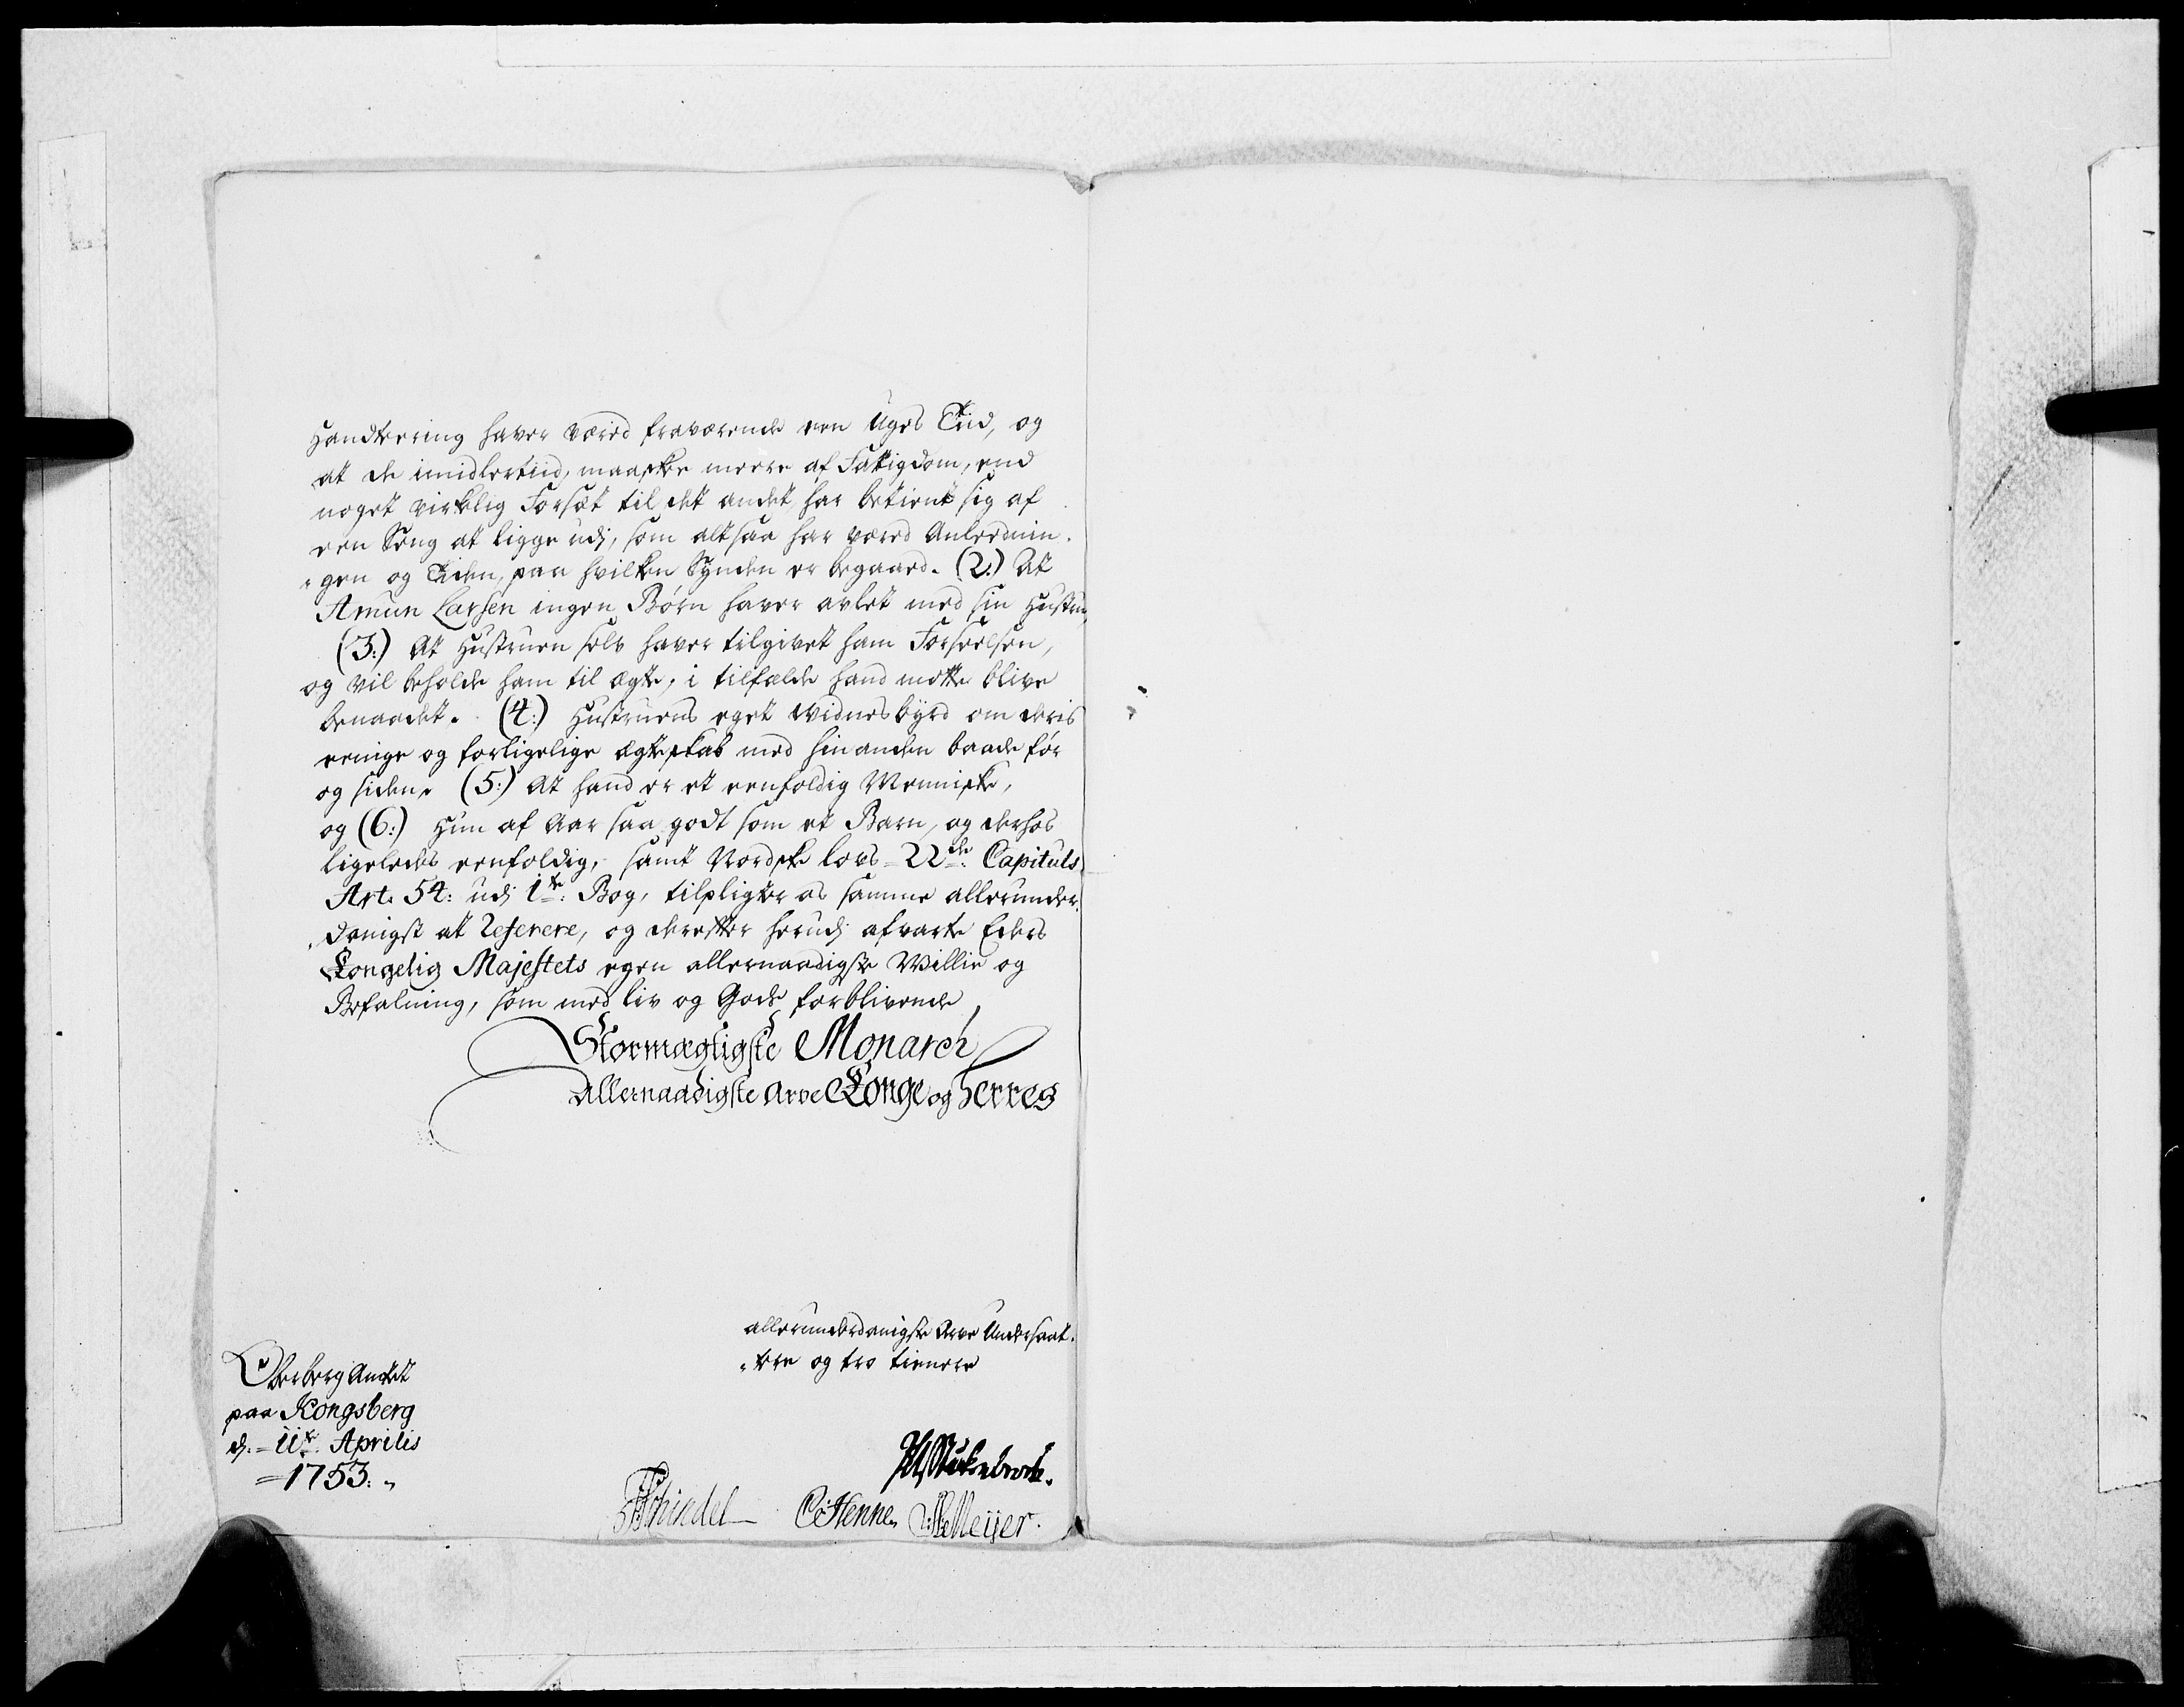 Handteering haver værед fraværende een Uges Tiid, og
at de imidlertiid, maaskee meere af Fattigdom, end
noget virklig Forsæt til det andet, har betient sig af
een Seng at ligge udj, som altsaa har væred Anleednin-
gen og Tiden, paa hvilken Synden er begaaed. (2.) At
Amun Larsen ingen Børn haver avlet med sin Hustrue,
(3:) At Hustruen selv haver tilgivet ham Forseelsen,
og vil beholde ham til Ægte, i tilfælde hand motte blive
benaadet. (4:) Hustruens eget Vidnesbyrd om deris
eenige og forligelige Ægteskab med hinanden baade før
og siden. (5:) At hand er et eenfoldig Menniske,
og (6:) Hun af Aar saa godt som et Barn, og derhos
ligeledes eenfoldig, samt Nordske Lovs 22de Capituls
Art. 54: udj 1te Bog, tilpligter os samme allerunder-
danigst at Referere, og derefter herudj afvarte Eders
Kongelig Majestets egen allernaadigste Willie og
Befalning, som med Liv og Gods forblivende
Stormægtigste Monarch
Allernaadigste Arve Konge og Herres
allerunderdanigste Arve Undersaat-
tere og tro tienere
OberbergAmtet
paa Kongsberg
d. 11te Aprilis
1753.
Stukenbrock.
Schindel C: Henne Meijer.